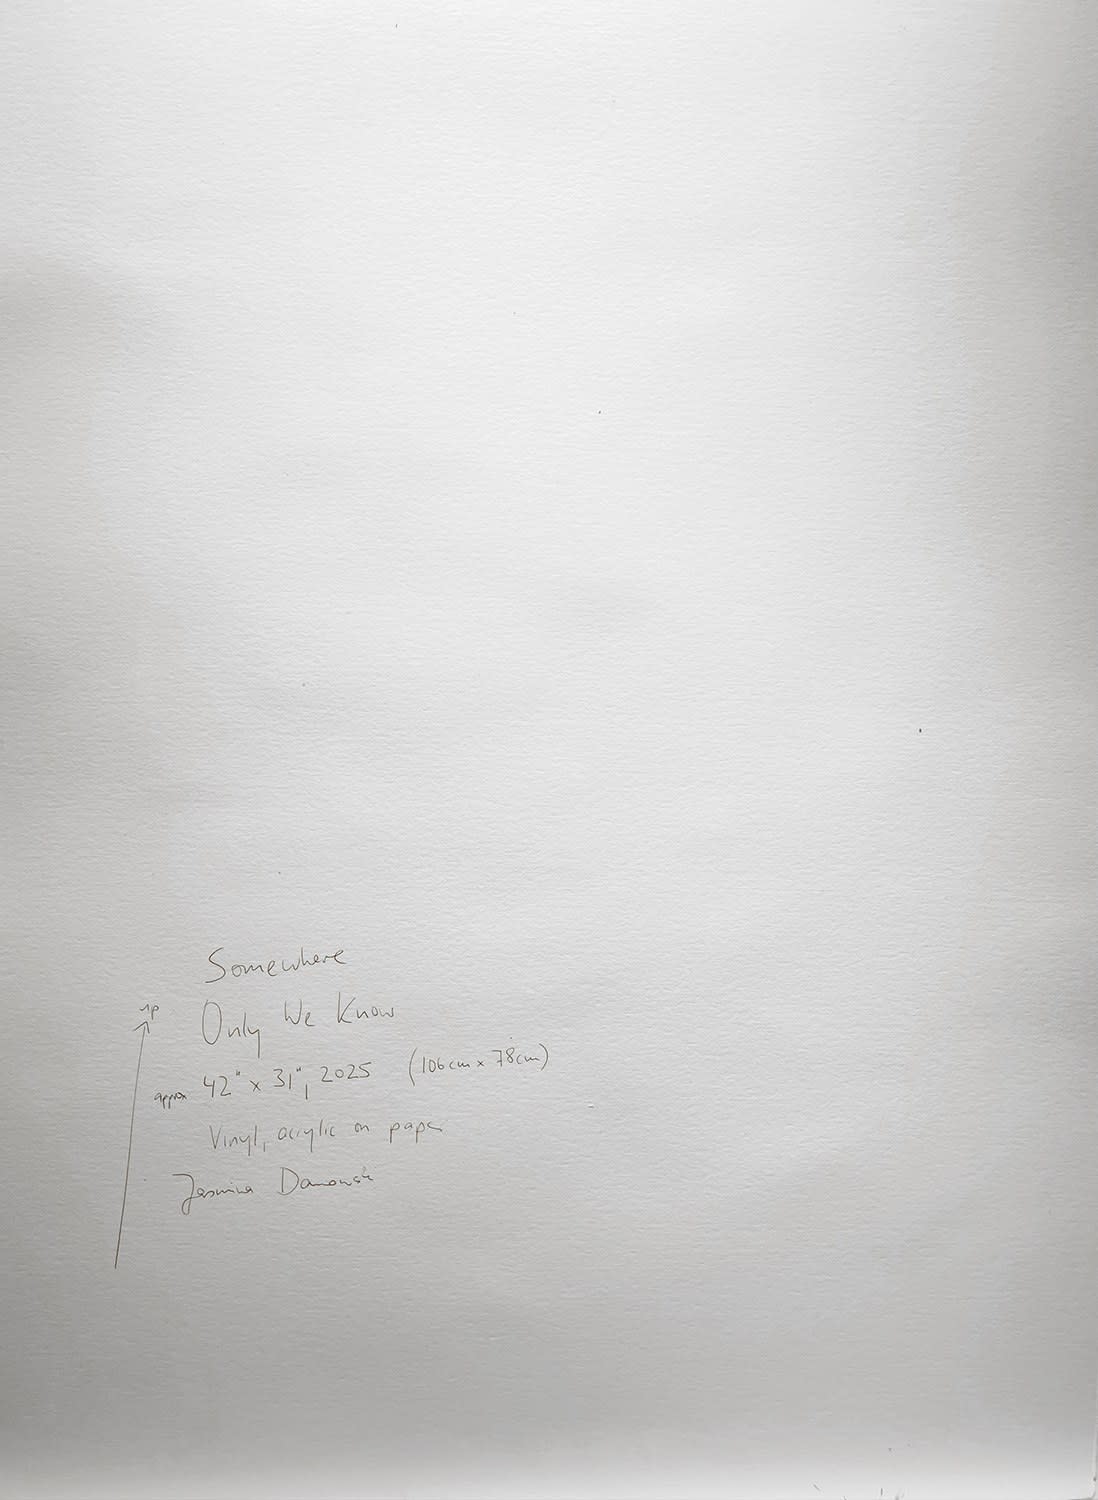 Somewhere
up
Only We Know
approx 42" x 31", 2025 (106cm x 78cm)
Vinyl, acrylic on paper
Jasmina Danowski